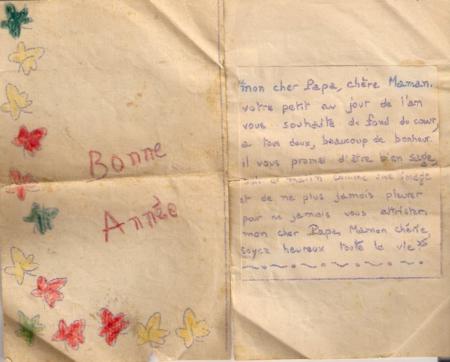 Bonne
Année
mon cher Papa, chère Maman.
votre petit au jour de l'an
vous souhaite du fond du cœur,
a tous deux, beaucoup de bonheur.
il vous promet d'être bien sage
et matin comme une image
et de ne plus jamais pleurer
pour ne jamais vous attrister.
mon cher Papa, Maman chérie
soyez heureux toute la vie